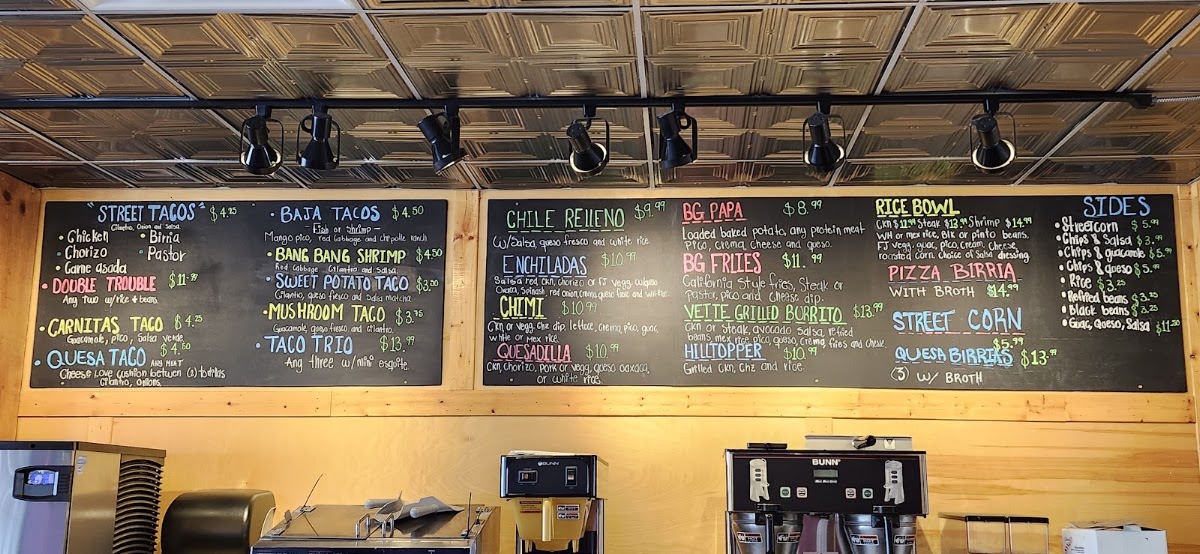 "STREET TACOS" $4.25
Cilantro, Onion and Salsa.
• Chicken • Birria
• Chorizo • Pastor
• Carne asada
• DOUBLE TROUBLE $11.99
Any two w/rice & beans.
• CARNITAS TACO $4.25
Guacamole, pico, Salsa verde.
• QUESA TACO ANY MEAT $4.50
Cheese Love Cushion between (2) tortillas
Cilantro, onions.
• BAJA TACOS $4.50
- Fish or Shrimp -
Mango pico, red cabbage and chipotle ranch
• BANG BANG SHRIMP $4.50
Red Cabbage Cilantro and Salsa.
• SWEET POTATO TACO
Cilantro, queso fresco and Salsa matcha.
• MUSHROOM TACO
Guacamole, queso fresco and cilantro.
• TACO TRIO $13.99
Any three w/mini esquite.
CHILE RELLENO $9.99
W/Salsa, queso fresco and white rice.
ENCHILADAS $10.99
Salsa red, ckn, chorizo or FJ Vegg,
Oaxaca, Spinash, red onion, crema, queso fresco and
CHIMI $10.99
Ckn or Vegg, chz dip, lettuce, crema, pico, guac,
white or Mex rice.
QUESADILLA $10.99
Ckn, chorizo, Pork or Vegg, queso oaxaca,
or white rice.
BG PAPA $8.99
Loaded baked potato, any protein meat
Pico, crema, cheese and queso.
BG FRIES $11.99
California Style fries, Steak or
Pastor, pico and cheese dip.
VETTE GRILLED BURRITO $13.99
Ckn or Steak, avocado salsa, refried
beans, mex rice pico, queso, crema, fries and chese.
HILLTOPPER $10.99
Grilled ckn, chz and rice.
RICE BOWL
Ckn $12.99 Steak $13.99 Shrimp $14.99
WH or mex rice, BLK or pinto beans.
FJ Vegg, guac, pico, cream, cheese,
roasted corn, choice of Salsa dressing.
PIZZA BIRRIA
WITH BROTH $14.99
STREET CORN
$5.99
QUESA BIRRIAS $13.99
(3) W/ BROTH
SIDES
• Streetcorn $5.99
• Chips & Salsa $3.99
• Chips & guacamole $5.99
• Chips & queso $5.99
• Rice $3.25
• Refried beans $3.25
• Black beans $3.25
• Guac, Queso, Salsa
BUNN
BUNN